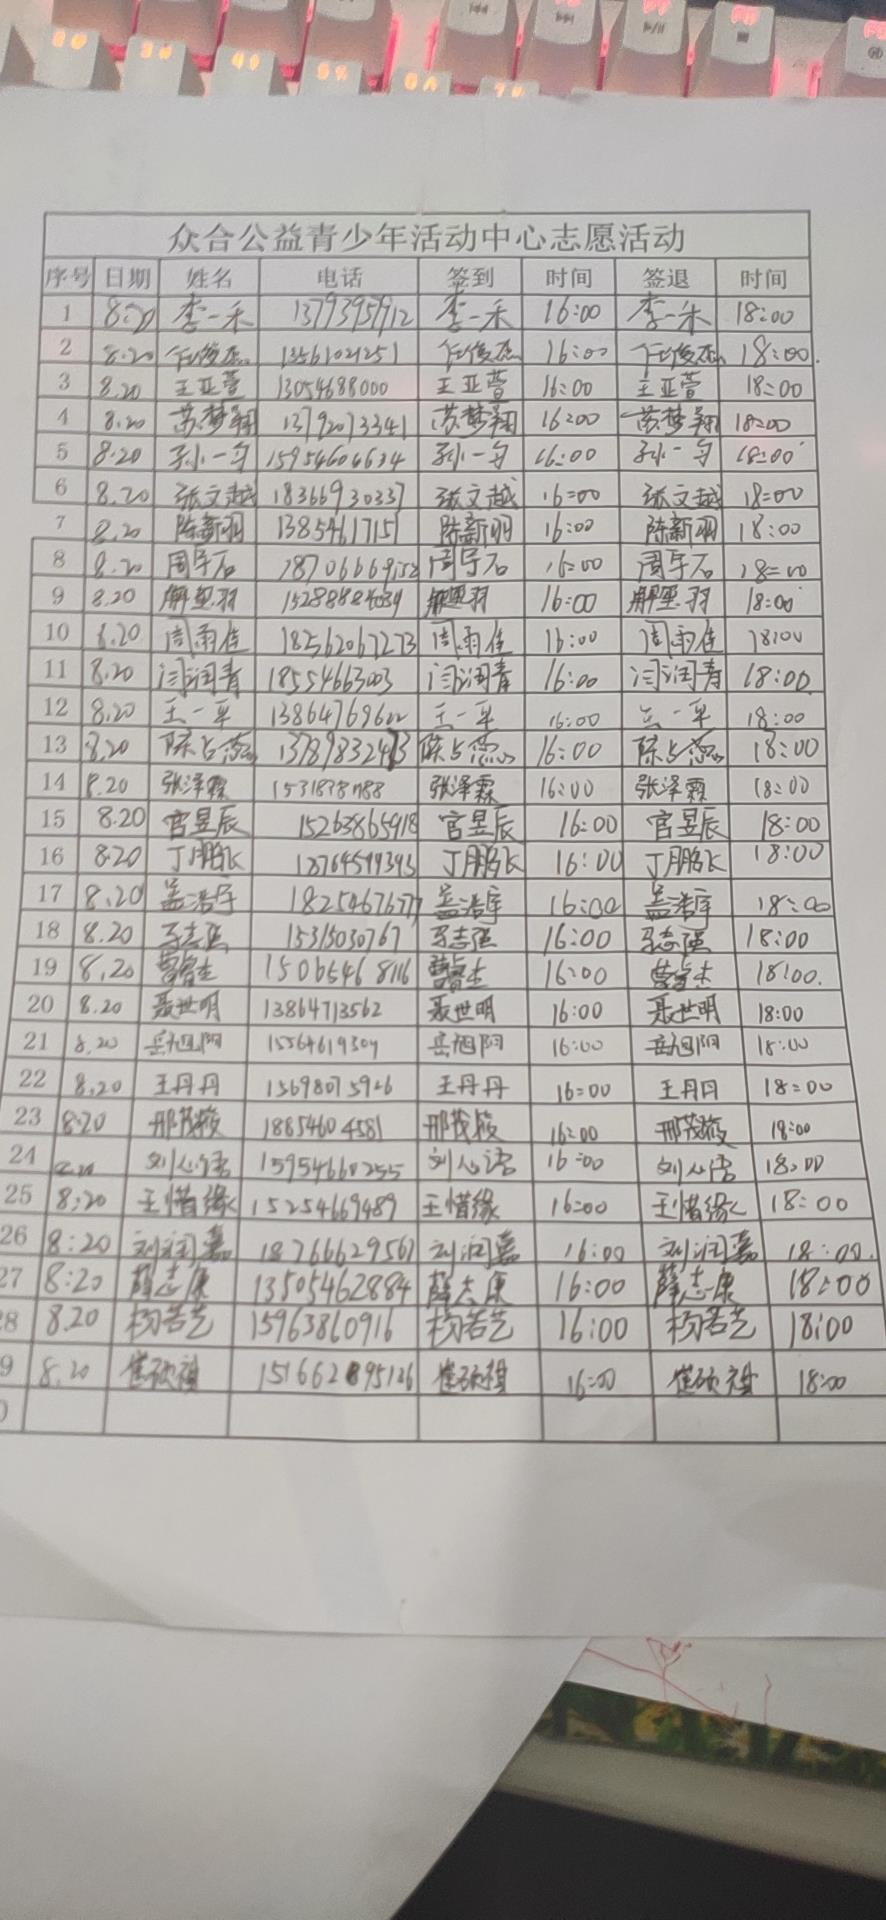 众合公益青少年活动中心志愿活动
序号 日期 姓名 电话 签到 时间 签退 时间
1 8:20 李一禾 13793959912 李一禾 16:00 李一禾 18:00
2 8.20 任俊杰 13561021251 任俊杰 16:00 任俊杰 18:00.
3 8.20 王亚萱 13054688000 王亚萱 16:00 王亚萱 18:00
4 8.20 苏梦翔 13792073341 苏梦翔 16:00 苏梦翔 18:00
5 8.20 孙一 15954604634 孙一 16:00 孙一 18:00
6 8.20 张文越 18366930337 张文越 16:00 张文越 18:00
7 8.20 陈新羽 13854617151 陈新羽 16:00 陈新羽 18:00
8 8.20 周宇石 周宇石 16:00 周宇石 18:00
9 8.20 16:00 18:00
10 8.20 周雨佳 18562067273 周雨佳 16:00 周雨佳 18:00
11 8.20 闫润青 18554663003 闫润青 16:00 闫润青 18:00
12 8.20 王一平 13864769622 王一平 16:00 王一平 18:00
13 8.20 16:00 18:00
14 8.20 张泽霖 张泽霖 16:00 张泽霖 18:00
15 8.20 官昱辰 15263865918 官昱辰 16:00 官昱辰 18:00
16 8.20 丁鹏飞 丁鹏飞 16:00 丁鹏飞 18:00
17 8.20 盖浩宇 盖浩宇 16:00 盖浩宇 18:00
18 8.20 马志强 15315030767 马志强 16:00 马志强 18:00
19 8.20 15065468116 16:00 18:00.
20 8.20 聂世明 13864713562 聂世明 16:00 聂世明 18:00
21 8.20 岳旭阳 15564619309 岳旭阳 16:00 岳旭阳 18:00
22 8.20 王丹丹 王丹丹 16:00 王丹丹 18:00
23 8.20 邢茂 18854604581 邢茂 16:00 邢茂 18:00
24 刘心语 15954660255 刘心语 16:00 刘心语 18:00
25 8:20 王惜缘 15254669489 王惜缘 16:00 王惜缘 18:00
26 8:20 刘润嘉 18766629567 刘润嘉 16:00 刘润嘉 18:00.
27 8:20 薛志康 13505462884 薛志康 16:00 薛志康 18:00
8 8.20 杨若艺 15963860916 杨若艺 16:00 杨若艺 18:00
9 8.20 崔硕祖 崔硕祖 16:00 崔硕祖 18:00